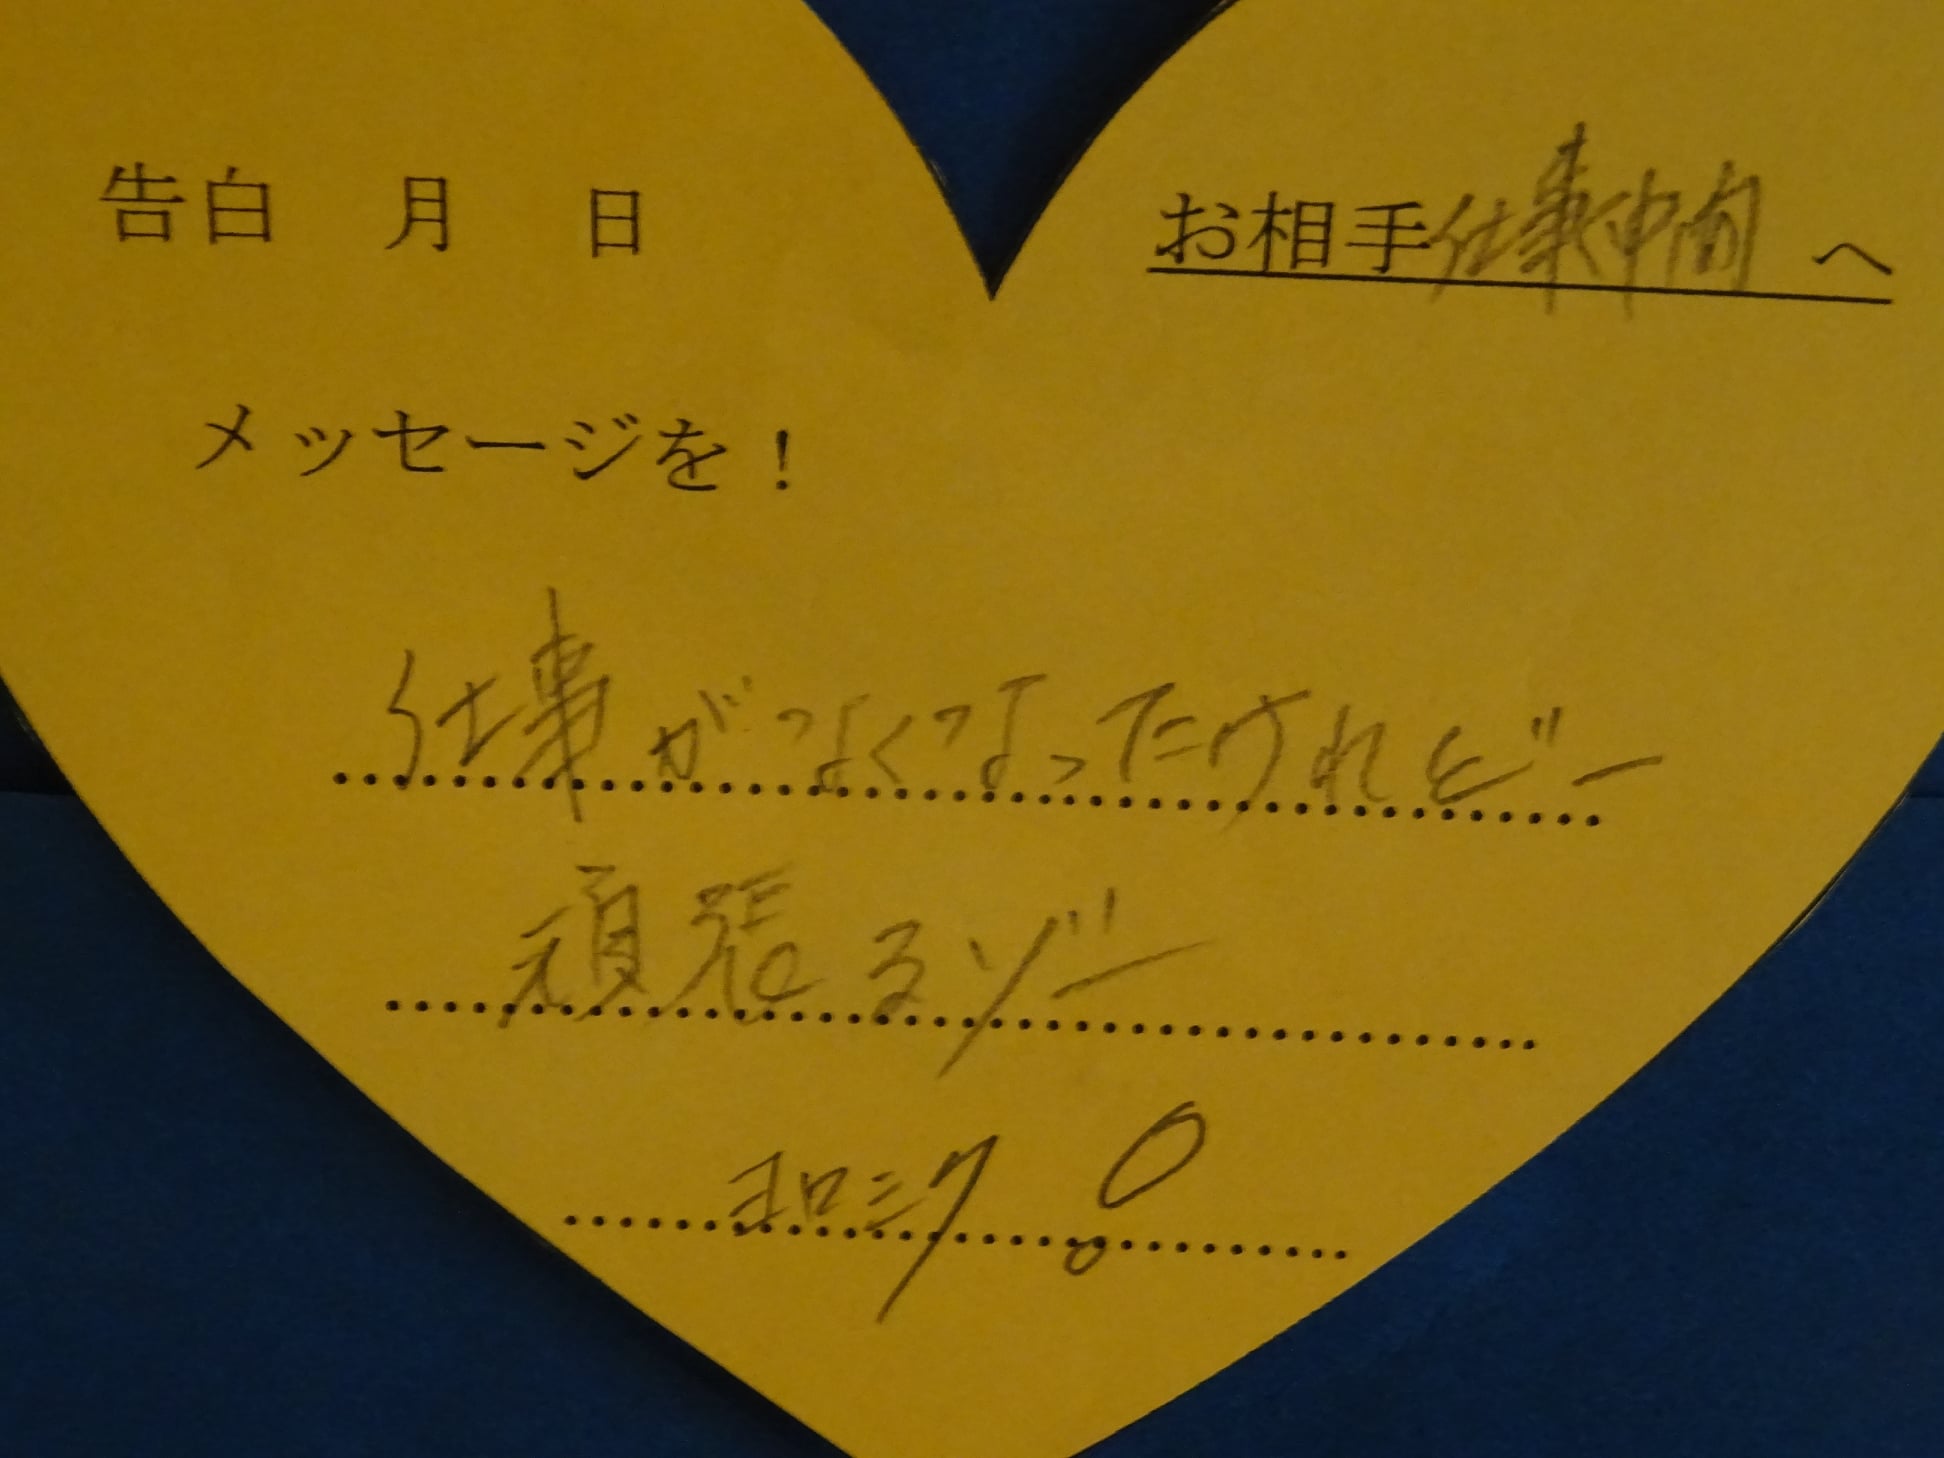 告白 月 日
お相手仕事仲間 へ
メッセージを!
仕事がなくなったけれどー
頑張るゾー
ヨロシク!